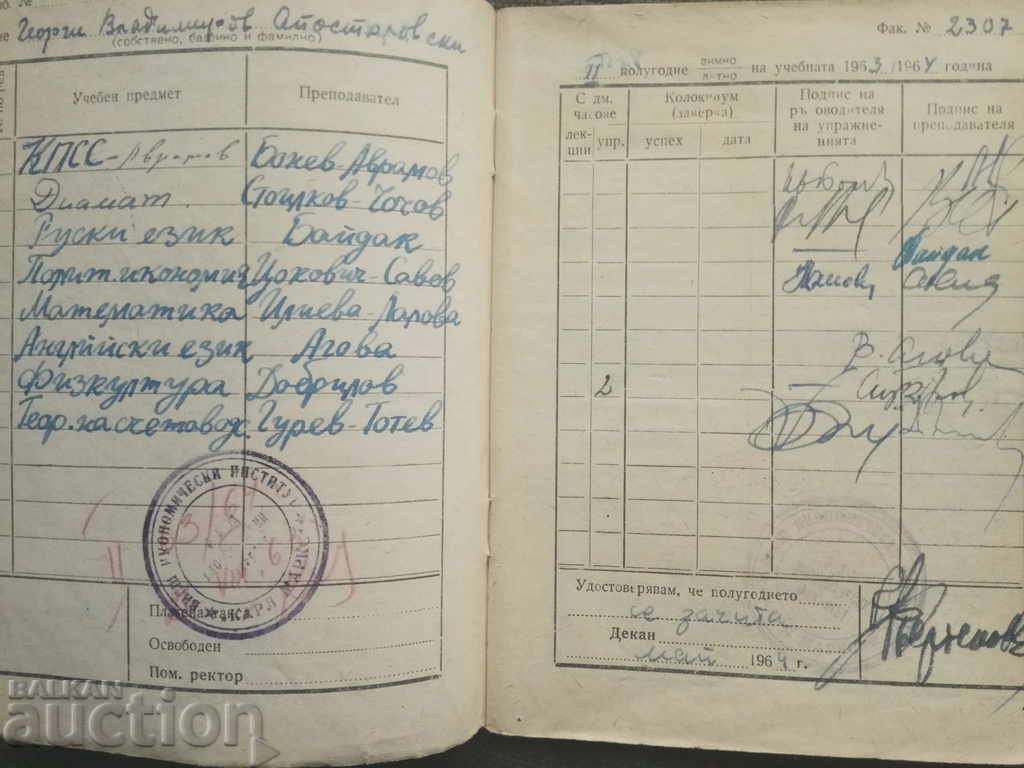 Георги Владимиров Апостоловски
(собствено, бащино и фамилно)
Учебен предмет Преподавател
КПСС-Аврамов Бакев-Аврамов
Диамат. Стоилков-Чохов
Руски език Байдак
Полит. икономия Цокович-Савов
Математика Илиева-Ларова
Английски език Агова
Физкултура Добрилов
Теор. на счетовод. Гурев-Тотев
ИКОНОМИЧЕСКИ ИНСТИТУТ КАРЛ МАРКС
Платена такса
Освободен
Пом. ректор
Фак. № 2307
II полугодие зимно лятно на учебната 1963/1964 година
С дм. часове
лекции упр.
Колоквиум (заверка)
успех дата
Подпис на ръководителя на упражненията
Подпис на преподавателя
Байдак
В. Агова
2
Удостоверявам, че полугодието
се зачита
Декан
май 1964 г.
BALKAN
auction